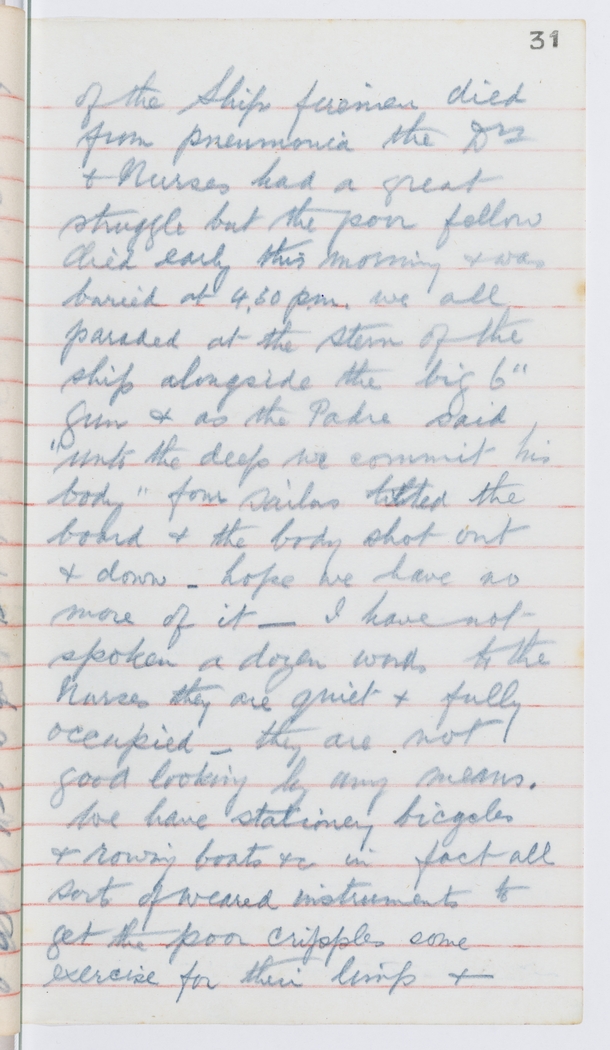 31
of the Ship firemen died
from pneumonia the Drs
& Nurses had a great
struggle but the poor fellow
died early this morning & was
buried at 4.30 pm. we all
paraded at the stern of the
ship alongside the big 6"
gun & as the Padre said
"unto the deep we commit his
body" four sailors tilted the
board & the body shot out
& down - hope we have no
more of it — I have not
spoken a dozen words to the
Nurses they are quiet & fully
occupied - they are not
good looking by any means.
We have stationery bicycles
& rowing boats &c in fact all
sorts of weared instruments to
get the poor cripples some
exercise for their limps &